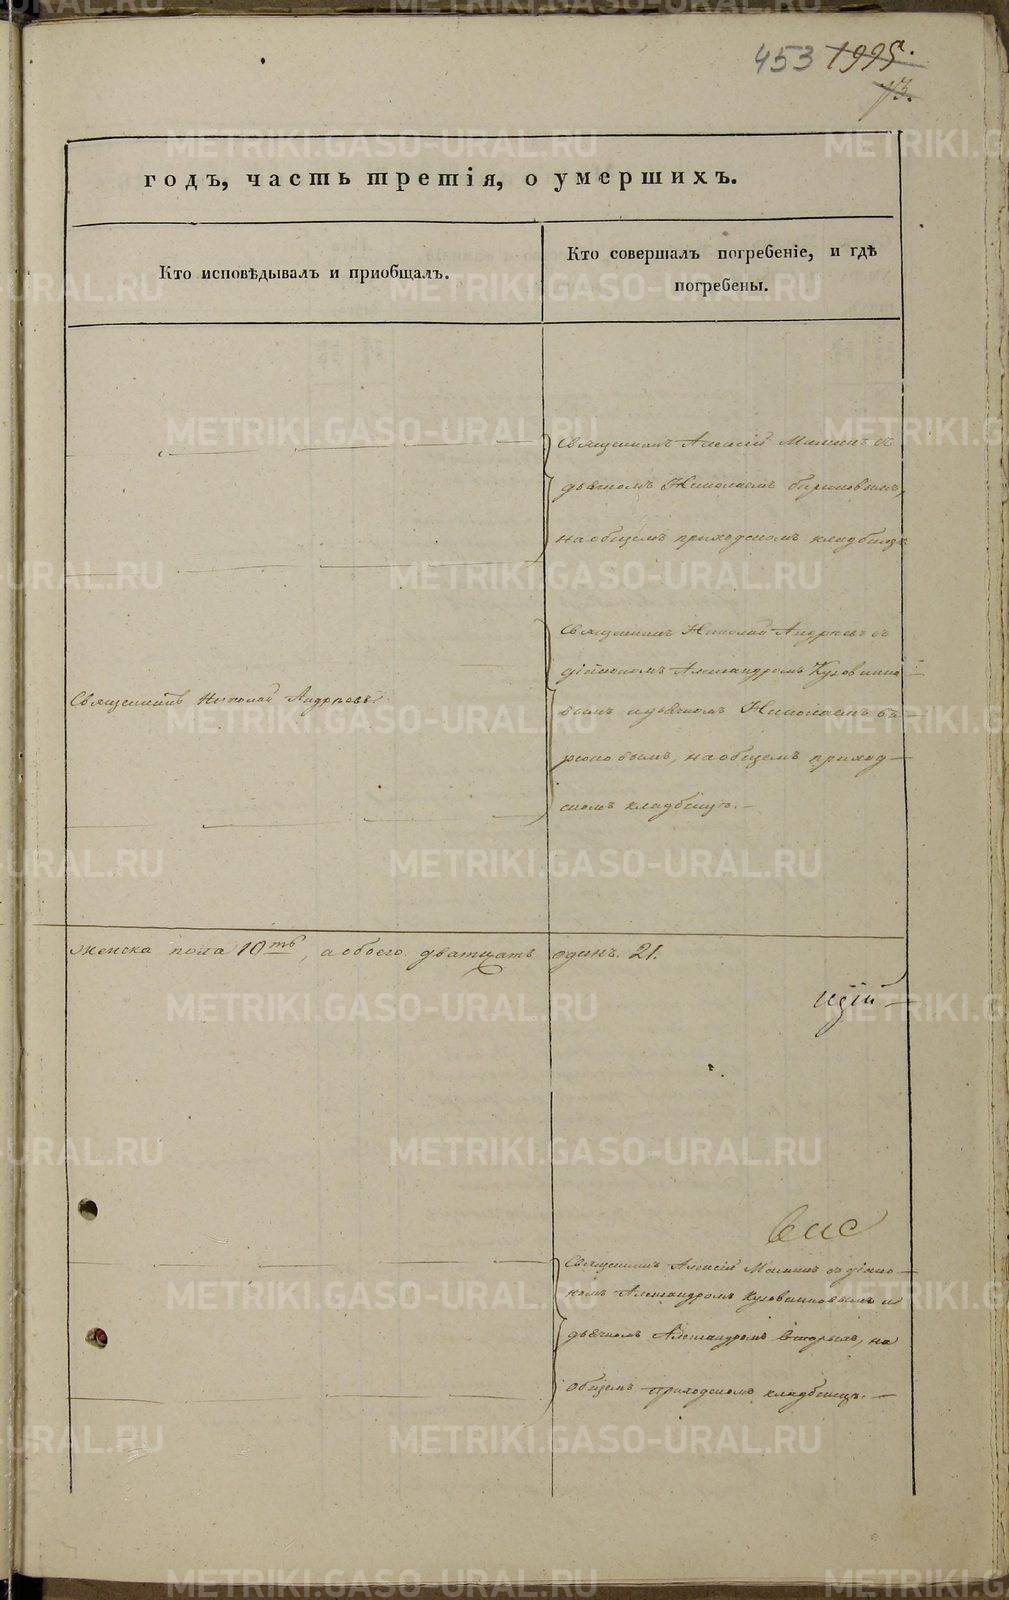 453 1995.
73.
годъ, часть третія, о умершихъ.
Кто исповѣдывалъ и приобщалъ.
Кто совершалъ погребеніе, и гдѣ
погребены.
Священникъ Алексій Маминъ съ
дьячкомъ Николаемъ Бирюковымъ,
на общемъ приходскомъ кладбищѣ
Священникъ Николай Андреевъ съ
діакономъ Александромъ Кузовнико
Священникъ Николай Андреевъ.
вымъ и дьячкомъ Николаемъ Би
рюковымъ, на общемъ приход
скомъ кладбищѣ.
Женска пола 10ть, а обоего дватцать одинъ. 21.
Священникъ Алексій Маминъ съ діако
номъ Александромъ Кузовниковымъ и
дьячкомъ Александромъ на
общемъ приходскомъ кладбищѣ.
METRIKI.GASO-URAL.RU